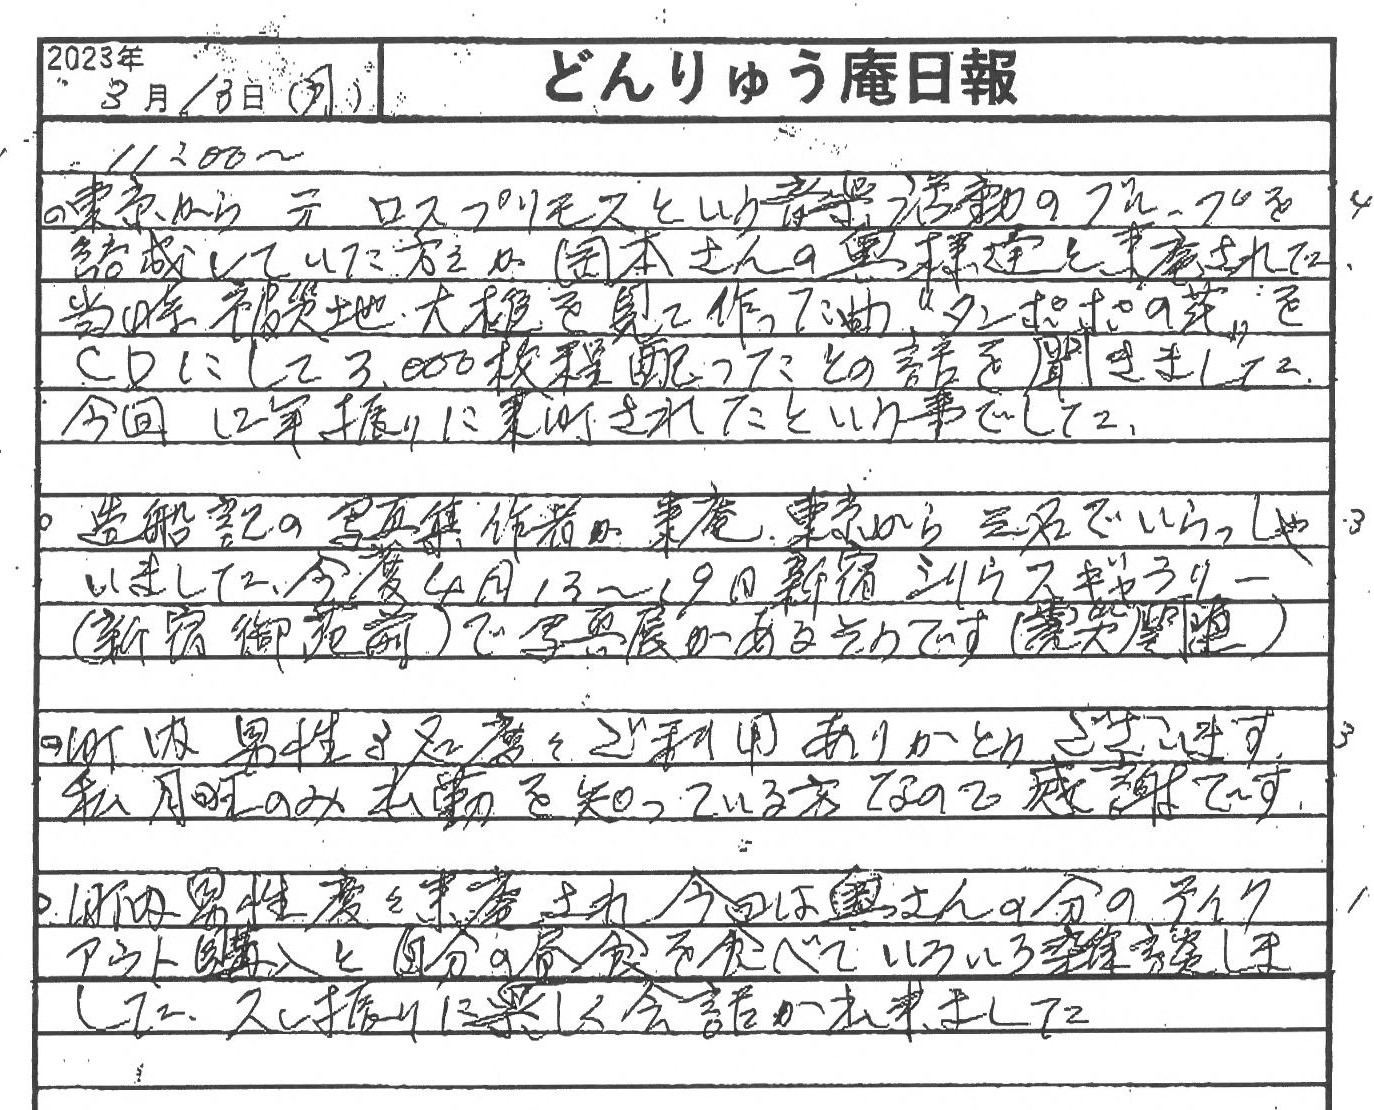 2023年
3月13日(月)
どんりゅう庵日報
11:00〜
○東京から 元 ロスプリモスという音楽活動のグループを 4
結成していた方が 岡本さんの奥様達と来庵された、
当時 被災地 大槌を見て作った曲 "タンポポの芽" を
CDにして3,000枚程配ったとの話を聞きました。
今回 12年振りに来町されたという事でした、
○造船記の写真集作者が来庵、東京から三名でいらっしゃ 3
いました、今度4月13〜19日新宿シリウスギャラリー
(新宿御苑前)で写真展があるそうです(震災関連)
○町内男性3名度々ご利用ありがとうございます、 3
私月曜のみ出勤を知っている方なので感謝です、
○町内男性度々来庵され今回は奥さんの分のテイク 1
アウト購入と自分の昼食を食べていろいろ雑談しま
した、久し振りに楽しく会話が出来ました